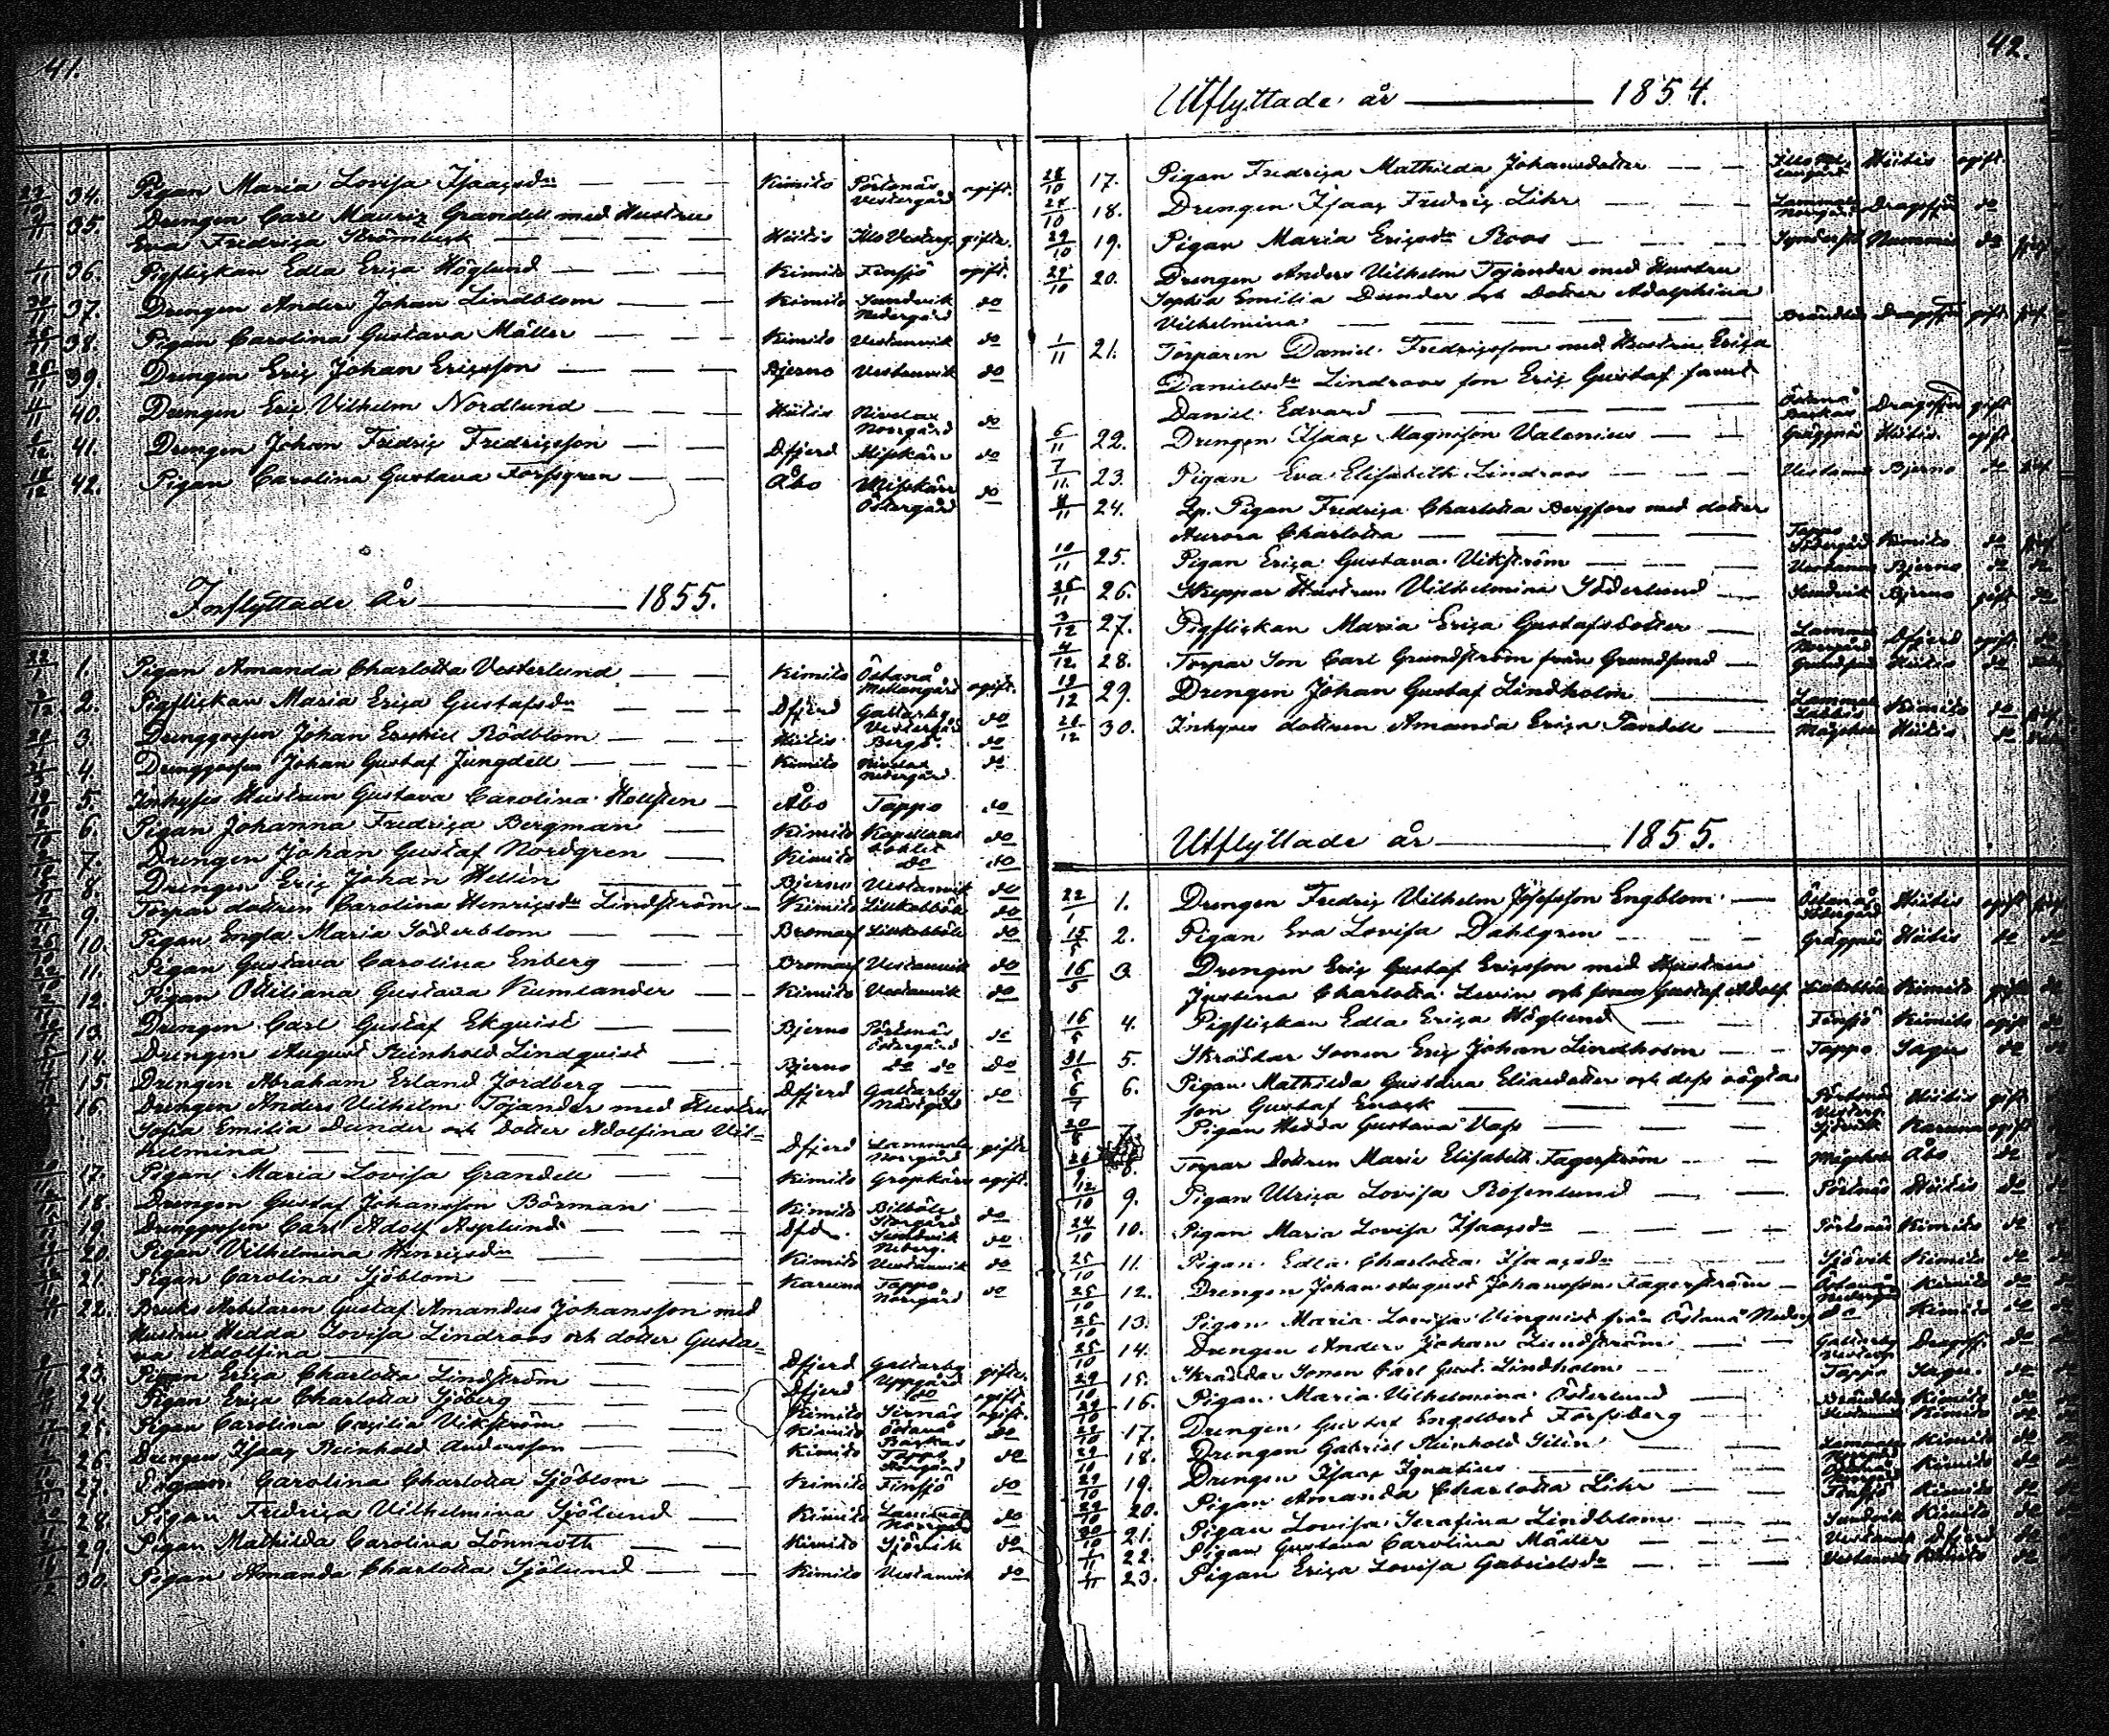 41.
34. Pigan Maria Lovisa Isaacsdr Kimito Pörtnäs Vestergård ogift.
35. Drengen Carl Mauriz Grandell med Hustru
Eva Fredrica Strömberg Hiitis Illo Vesterg. gifte.
36. Pigflickan Edla Erica Höglund Kimito Finsjö ogift.
37. Drengen Anders Johan Lindblom Kimito Sundvik Nedergård do
38. Pigan Carolina Gustava Mäller Kimito Vestanvik do
39. Drengen Eric Johan Ericsson Bjerno Vestanvik do
40. Drengen Eric Vilhelm Nordlund Hiitis Nivelax Norrgård do
41. Drengen Johan Fredric Fredricsson Dfjerd Misskärr do
42. Pigan Carolina Gustava Forssgren Åbo Misskärr Östergård do
Inflyttade år 1855.
22/1 1. Pigan Amanda Charlotta Vesterlund Kimito Östanå Mellangård ogift.
2. Pigflickan Maria Erica Gustafsdr Dfjerd Galtarby Vestergård do
3. Drenggossen Johan Rödblom Hiitis Bergö do
4. Drenggossen Johan Gustaf Ljungdell Kimito Nivelax Nedergård do
5. Inhyses Hustrun Gustava Carolina Hollsten Åbo Tappo do
6. Pigan Johanna Fredrica Bergman Kimito Kapellans bohlet do
7. Drengen Johan Gustaf Nordgren Kimito do do
8. Drengen Eric Johan Hellen Bjerno Vestanvik do
9. Torpar dottren Carolina Henricsdr Lindström Kimito Lillkobböle do
10. Pigan Engla Maria Söderblom Bromarf Lillkobböle do
11. Pigan Gustava Carolina Enberg Bromarf Vestanvik do
12. Pigan Ottiliana Gustava Kumlander Kimito Vestanvik do
13. Drengen Carl Gustaf Ekquist Bjerno Pörtnäs Östergård do
14. Drengen August Reinhold Lindquist Bjerno do do do
15. Drengen Abraham Erland Jordberg Dfjerd Galtarby Nästgård do
16. Drengen Anders Vilhelm Tojander med Hustru
Sofia Emilia Dunder och dotter Adolfina Vil-
helmina Dfjerd Lammala Norrgård gifte
17. Pigan Maria Lovisa Grandell Kimito Gropkärr ogift.
18. Drengen Gustaf Johansson Börman Kimito Billböle Storgård do
19. Drenggossen Carl Adolf Asplund Dfd Sundvik Nederg. do
20. Pigan Vilhelmina Henricsdr Kimito Vestanvik do
21. Pigan Carolina Sjöblom Karuna Tappo Norrgård do
22. Bruks Arbetaren Gustaf Amandus Johansson med
Hustru Hedda Lovisa Lindroos och dotter Gusta-
va Adolfina Dfjerd Galtarby Uppgård gifte.
23. Pigan Erica Charlotta Lindström Dfjerd do ogift
24. Pigan Erica Charlotta Sjöberg Kimito Sirnäs ogift.
25. Pigan Carolina Cecilia Vikström Kimito Östanå Backas do
26. Drengen Isaac Reinhold Andersson Kimito Tappo Norrgård do
27. Pigan Carolina Charlotta Sjöblom Kimito Finsjö do
28. Pigan Fredrica Vilhelmina Sjölund Kimito Lammala Norrgård do
29. Pigan Mathilda Carolina Lönnroth Kimito Sjövik do
30. Pigan Amanda Charlotta Sjölund Kimito Vestanvik do
42.
Utflyttade år 1854.
28/10 17. Pigan Fredrica Mathilda Johansdotter Hiitis ogift.
28/10 18. Drengen Isaac Fredric Lihr Lammala Norrgård Dragsfjerd do
29/10 19. Pigan Maria Ericsdr Roos Nummis do
29/10 20. Drengen Anders Vilhelm Tojander med Hustru
Sophia Emilia Dunder och dotter Adolphina
Vilhelmina Brändböle Dragsfjerd gift
1/11 21. Torparen Daniel Fredricsson med Hustru Erica
Danielsdr Lindroos son Eric Gustaf samt
Daniel Edvard Östanå Backas Dragsfjerd gift
6/11 22. Drengen Isaac Magnison Valenius Gräggnäs Hiitis ogift
7/11 23. Pigan Eva Elisabeth Lindroos Bjerno do
8/11 24. Qp. Pigan Fredrica Charlotta Bergfors med dotter
Aurora Charlotta Tappo Södergård Kimito do
10/11 25. Pigan Erica Gustava Vikström Bjerno do
25/11 26. Skeppar Hustrun Vilhelmina Söderlund Sundvik Bjerno gift do
3/12 27. Pigflickan Maria Erica Gustafsdotter Lammala Norrgård Dfjerd ogift do
4/12 28. Torpar Son Carl Grundström från Grundsund Grundsund Hiitis do
19/12 29. Drengen Johan Gustaf Lindholm Lammala Kimito do
28/12 30. Inhyses dottren Amanda Erica Tandell Hiitis do
Utflyttade år 1855.
22/1 1. Drengen Fredric Vilhelm Josefsson Engblom Östanå Södergård Hiitis ogift
15/5 2. Pigan Eva Lovisa Dahlgren Gräggnäs Hiitis do do
16/5 3. Drengen Eric Gustaf Ericsson med Hustru
Justina Charlotta Levin och sonen Gustaf Adolf Kimito gift do
16/5 4. Pigflickan Edla Erica Höglund Finsjö Kimito ogift do
31/5 5. Skräddar Sonen Eric Johan Lindholm Tappo Sagu do do
6/7 6. Pigan Mathilda Gustava Eliaedotter och dess oägta
son Gustaf Enock Pörtnäs Vesterg. Hiitis gift
20/8 7. Pigan Hedda Gustava Vass Sjövik Karuna ogift
8. Torpar Dottren Maria Elisabeth Fagerström Åbo do
12/10 9. Pigan Ulrica Lovisa Rosenlund Pörtnäs Hiitis do do
24/10 10. Pigan Maria Lovisa Isaacsdr Pörtnäs Kimito do do
25/10 11. Pigan Edla Charlotta Isaacsdr Sjövik Kimito do do
25/10 12. Drengen Johan August Johansson Fagerström Östanå Nedergård Kimito do do
25/10 13. Pigan Maria Lovisa Vinquist från Östanå Nederg do Kimito do do
25/10 14. Drengen Anders Johan Lundström Galtarby Dragsfj. do
29/10 15. Skräddar Sonen Carl Gust. Lindholm Tappo Sagu do do
29/10 16. Pigan Maria Vilhelmina Österlund Brändböle Kimito do
29/10 17. Drengen Gustaf Engelbert Forssberg Kimito do do
29/10 18. Drengen Gabriel Reinhold Silén Lammala Norrgård Kimito do do
29/10 19. Drengen Isaac Ignatius Kimito do do
29/10 20. Pigan Amanda Charlotta Lihr Finsjö Kimito do do
30/10 21. Pigan Lovisa Serafina Lindblom Sundvik Kimito do do
1/11 22. Pigan Gustava Carolina Mäller Vestanvik Dfjerd do
1/11 23. Pigan Erica Lovisa Gabrielsdr Vestanvik Kimito do